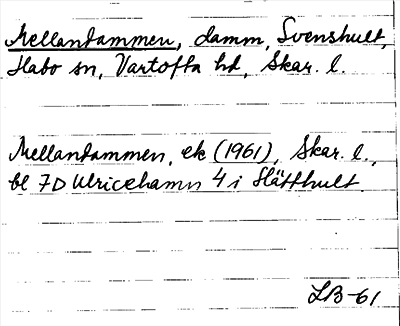 Mellandammen, damm, Svenshult,
Habo sn, Vartofta hd, Skar. l.
Mellandammen, ek (1961), Skar. l.,
bl 7D Ulricehamn 4 i Slätthult.
LB-61